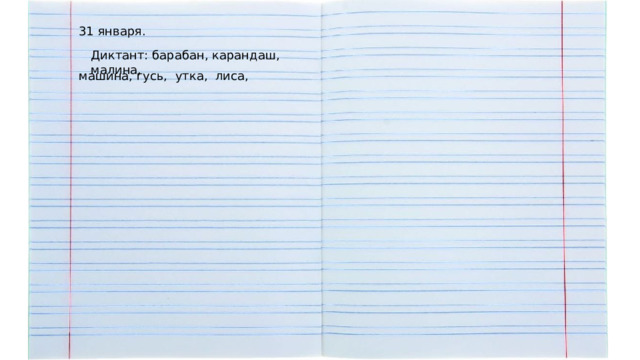 31 января.
Диктант: барабан, карандаш,
малина,
машина, гусь, утка, лиса,